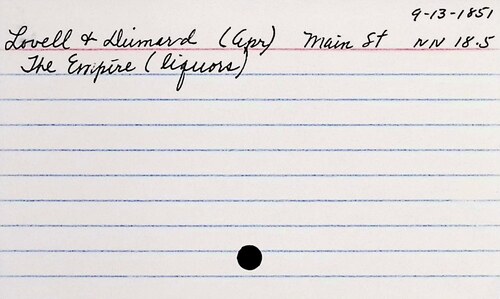 9-13-1851
Lovell & Dumard (Apr) Main St NN 18-5
The Empire (liquors)